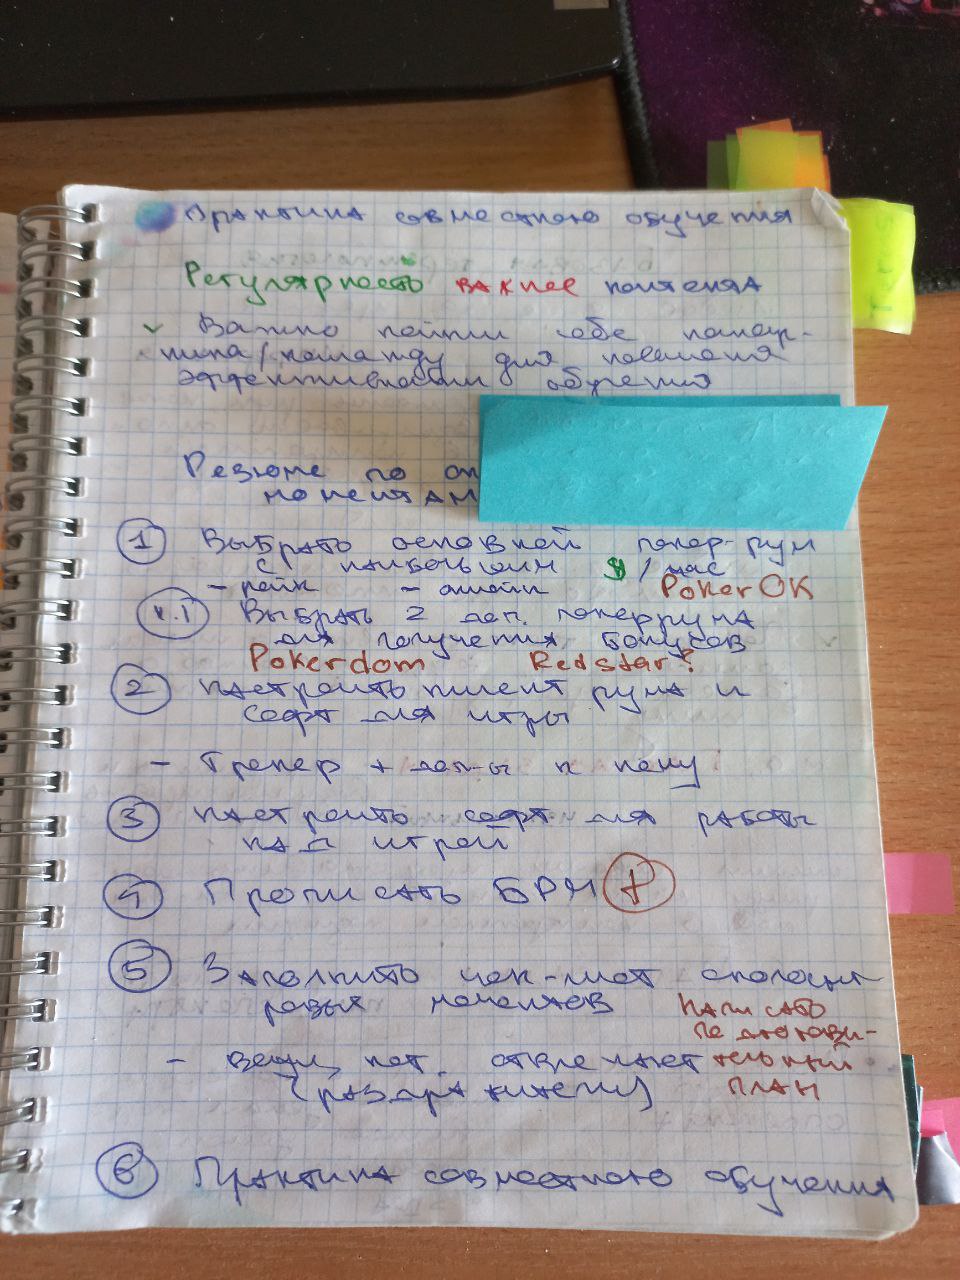 Практика совместного обучения
Регулярность важнее контента
✓ Важно найти себе напар-
ника/команду для повышения
эффективности обучения
Резюме по
моментам
① Выбрать основной покер-рум
с наибольшим $/час
- рейк - онлайн PokerOK
1.1 Выбрать 2 доп. покеррума
для получения бонусов
Pokerdom Redstar?
② Настроить клиент рума и
софт для игры
- Трекер + доп-ы к нему
③ Настроить софт для работы
над игрой
④ Прописать БРМ +
⑤ Заполнить чек-лист
моментов Написать
- Вещи, кот. отвлекают
(раздражители) план
⑥ Практика совместного обучения